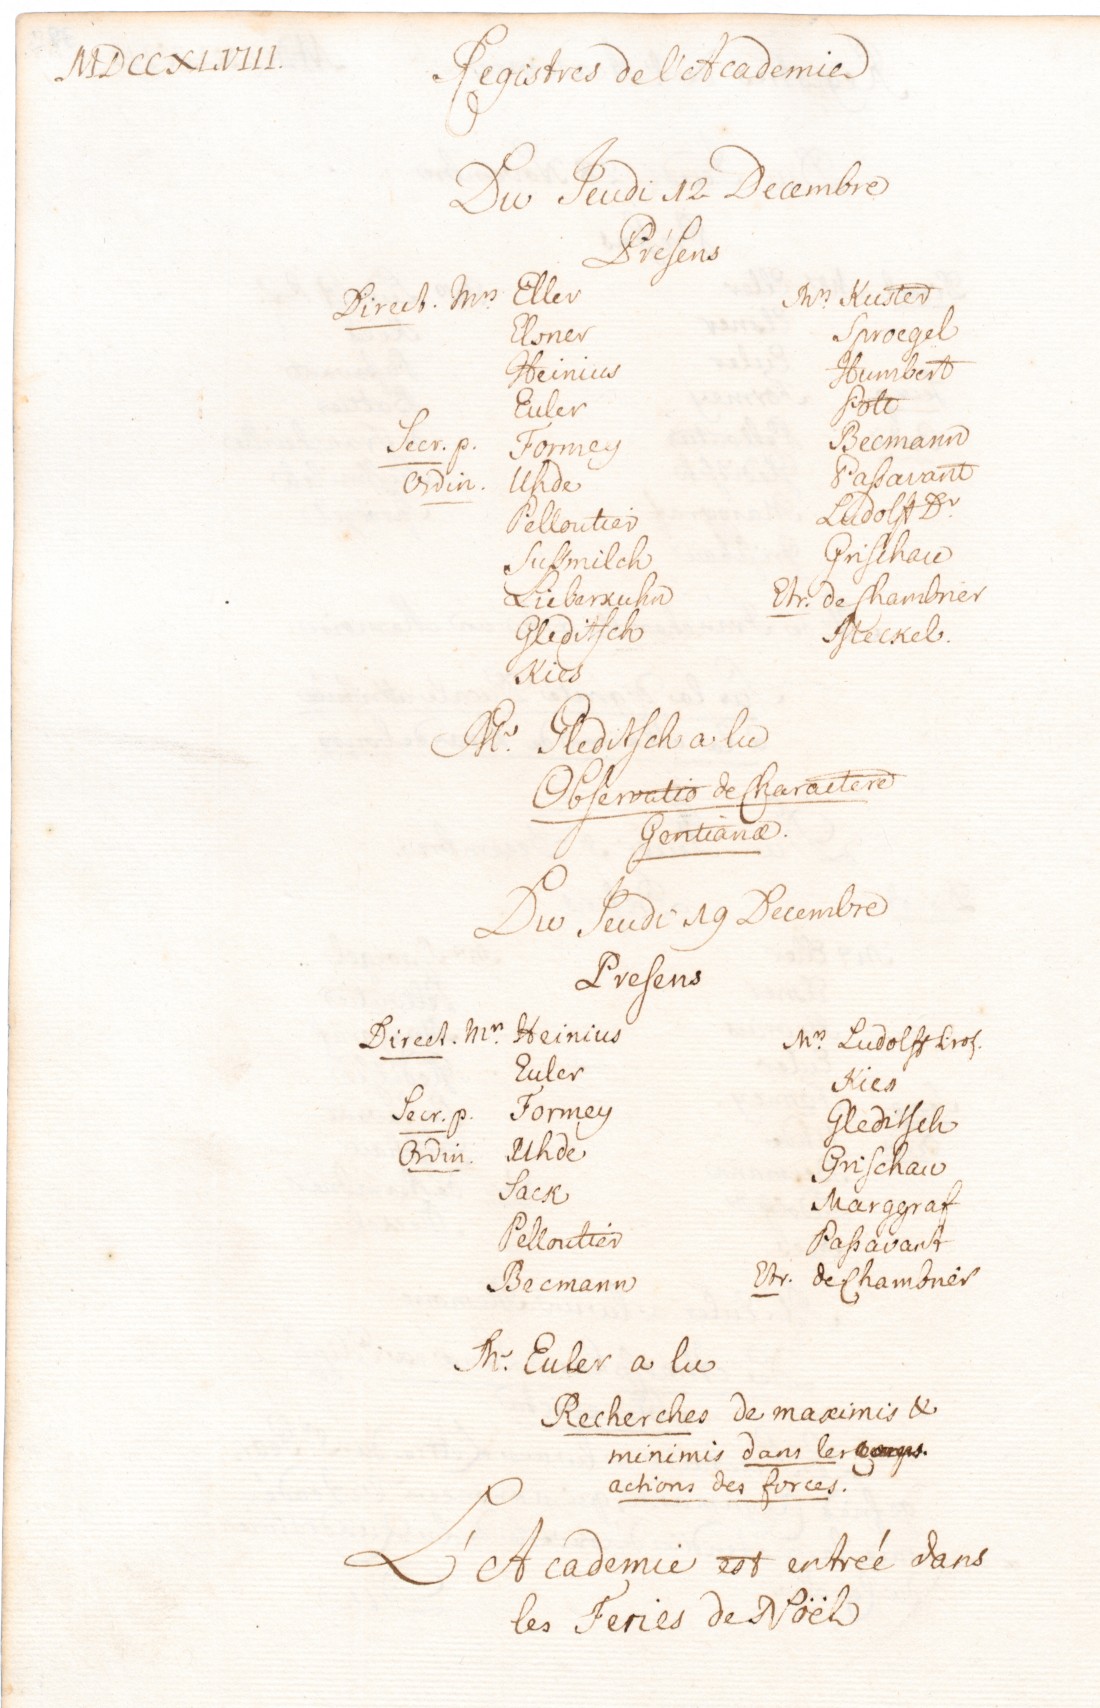 MDCCXLVIII.
Registres de l'Academie
Du Jeudi 12 Decembre
Présens
Direct. Mrs Eller
Elsner
Heinius
Euler
Secr. p. Formey
Ordin. Uhde
Pelloutier
Sussmilch
Lieberkuhn
Gleditsch
Kies
Mrs Kuster
Sproegel
Humbert
Pott
Becmann
Passavant
Ludolff Dr
Grischau
Etr. de Chambrier
Steckel.
Mr. Gleditsch a lu
Observatio de Charactere
Gentianæ.
Du Jeudi 19 Decembre
Presens
Direct. Mrs Heinius
Euler
Secr. p. Formey
Ordin. Uhde
Sack
Pelloutier
Becmann
Mrs Ludolff Prof.
Kies
Gleditsch
Grischau
Marggraf
Passavant
Etr. de Chambrier
Mr. Euler a lu
Recherches de maximis &
minimis dans les
actions des forces.
L'Academie est entreé dans
les Feries de Nöël